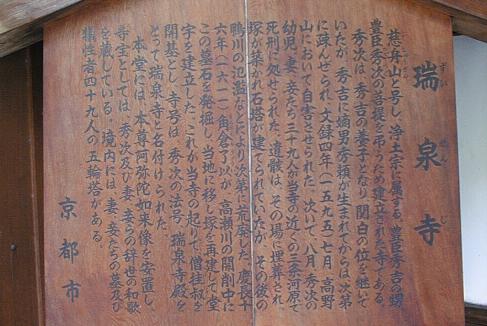 瑞泉寺
ずいせんじ
慈舟山と号し、浄土宗に属する。豊臣秀吉の甥
豊臣秀次の菩提を弔うため建立された寺である。
秀次は、秀吉の養子となり関白の位を継いで
いたが、秀吉に嫡男秀頼が生まれてからは次第
に疎んぜられ、文録四年(一五九五)七月、高野
山において自害させられた。次いで、八月、秀次の
幼児、妻、妾たち三十九人が当寺の近くの三条河原で
死刑に処せられた。遺骸は、その場に埋葬され、
塚が築かれ石塔が建てられていたが、その後の
鴨川の氾濫などにより次第に荒廃した。慶長十
六年(一六一一)角倉了以が、高瀬川の開削中に
この墓石を発掘し、当地に移し、塚を再建して堂
宇を建立した。これが当寺の起りで、僧桂叔を
開基とし、寺号は、秀次の法号、瑞泉寺殿を
とって瑞泉寺と名付けられた。
本堂には、本尊阿弥陀如来像を安置し、
寺宝としては、秀次及び妻、妾らの辞世の和歌
を蔵している。境内には、妻、妾たちの墓及び
犠牲者四十九人の五輪塔がある。
京都市